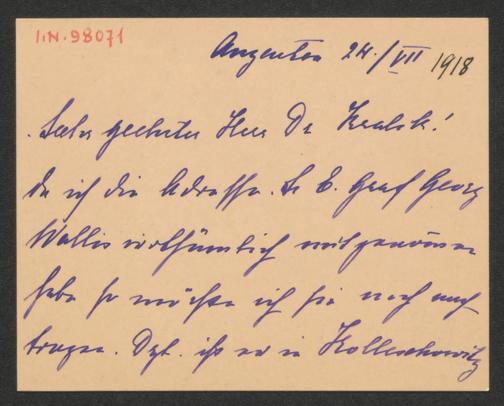 I.N. 98071
24./VII 1918
Sehr geehrter Herr Dr Kralik!
da ich die Adresse Sr E. Graf Georg
Wallis irrthümlich mitgenommen
habe so möchte ich sie noch nach
tragen. Dzt. ist er in Kolleschowitz